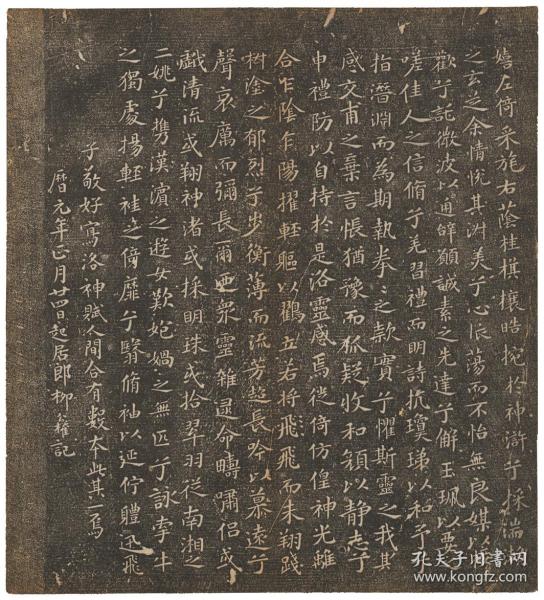 嬉左倚采旄右蔭桂棋攘皓捥於神滸兮採湍
之玄芝余情悅其淑美兮心振蕩而不怡無良媒以
歡兮託微波以通辭願誠素之先達兮解玉珮以要
嗟佳人之信脩兮羌習禮而明詩抗瓊珶以和予
指潛淵而為期執拳之款實兮懼斯靈之我其
感交甫之棄言悵猶豫而狐疑收和顏以静志兮
申禮防以自持於是洛靈感焉徙倚仿偟神光離
合乍陰乍陽擢輕軀以鶴立若將飛飛而未翔踐
椒塗之郁烈兮步衡薄而流芳超長吟以慕遠兮
聲哀厲而彌長爾迺衆靈雜遝命疇嘯侶或
戲清流或翔神渚或採明珠或拾翠羽從南湘之
二姚兮攜漢濱之遊女歎妃媧之無匹兮詠牽牛
之獨處揚輕袿之倚靡兮翳脩袖以延佇體迅飛
子敬好寫洛神賦人間合有數本此其一焉
曆元年正月廿四日起居郎柳權記
孔夫子旧书网
www.kongfz.com